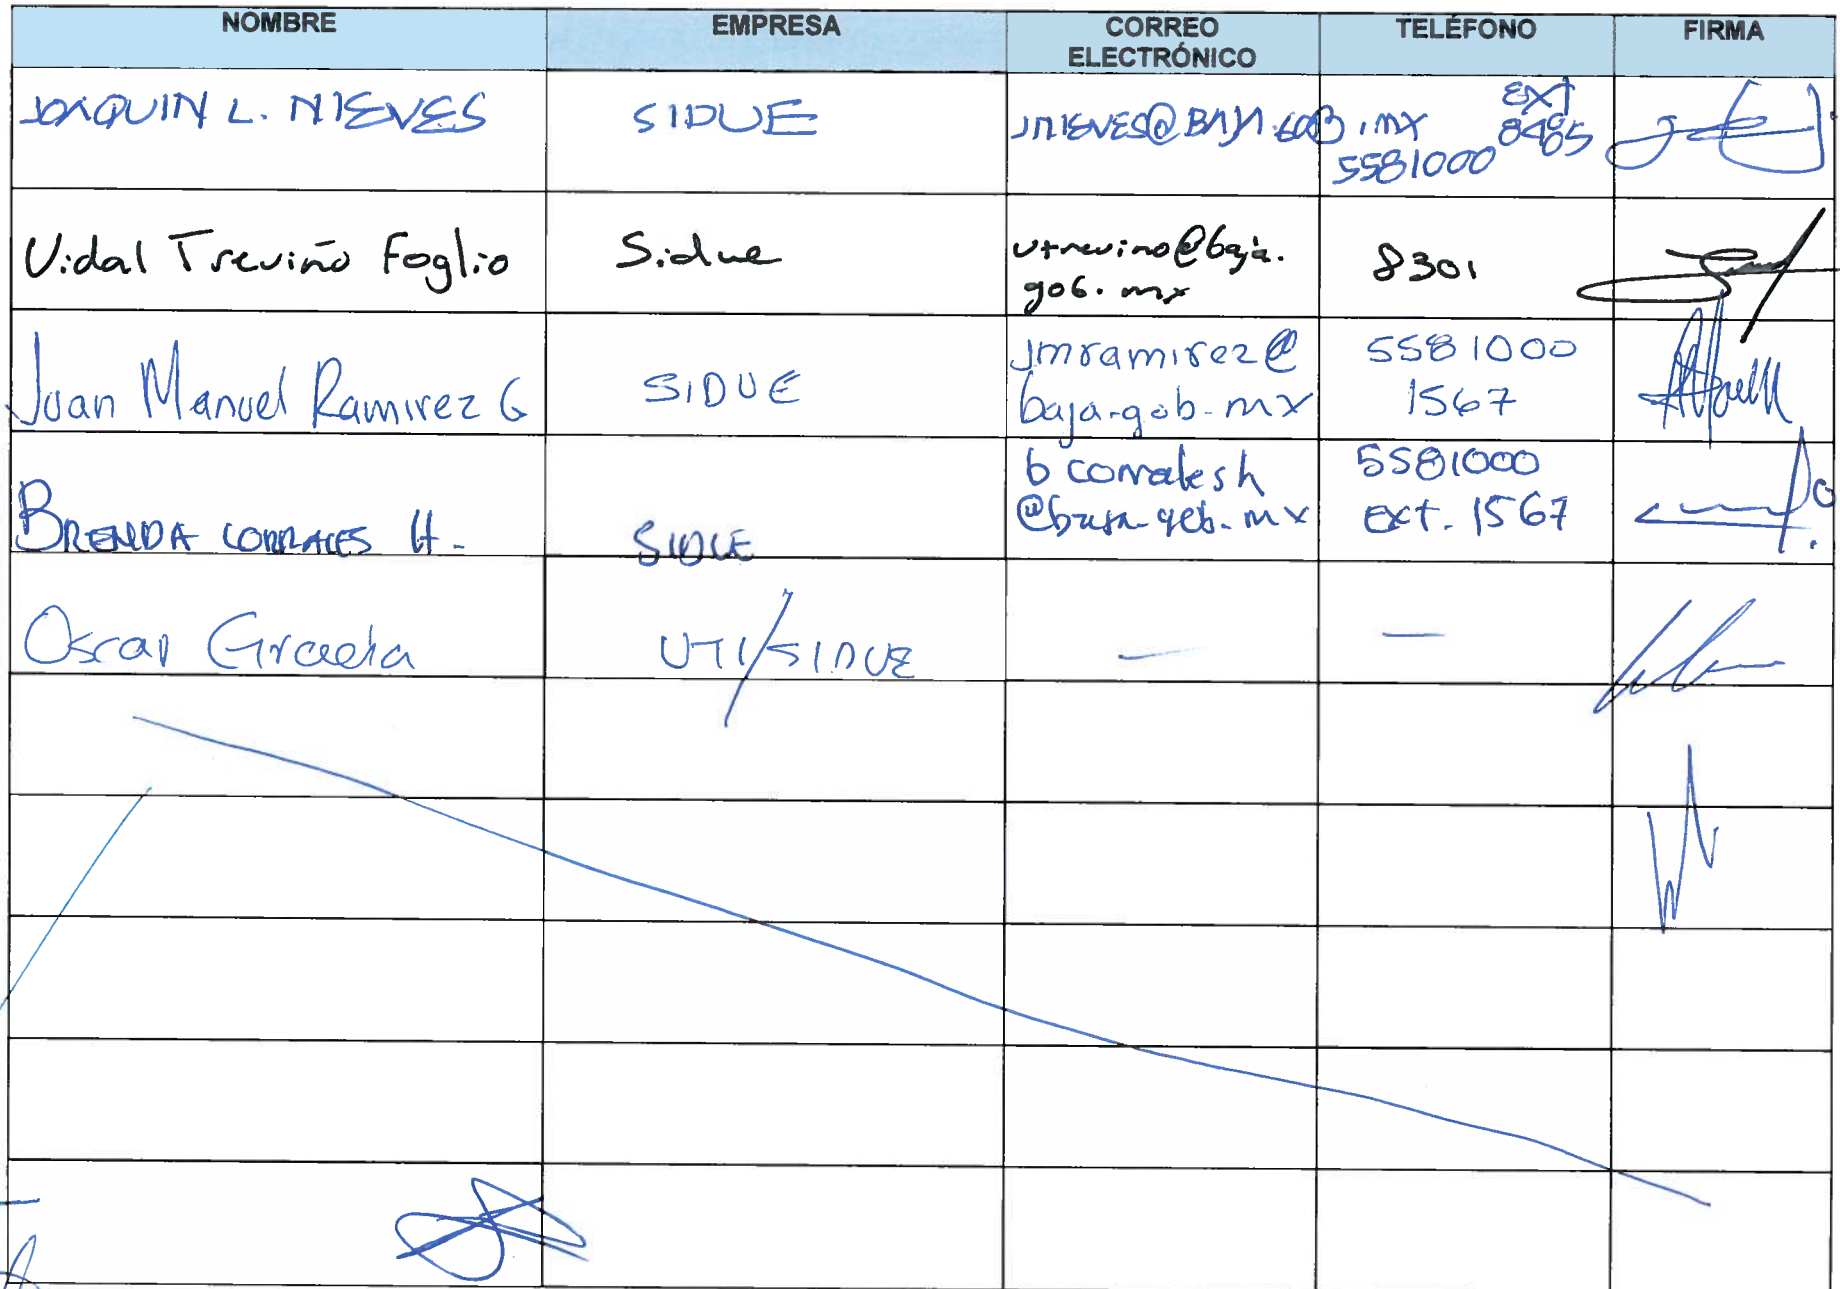 NOMBRE EMPRESA CORREO ELECTRÓNICO TELÉFONO FIRMA
JOAQUIN L. NIEVES SIDUE JNIEVES@BAJA.GOB.MX 5581000 EXT 8485
Vidal Treviño Foglio Sidue vtrevino@baja.
gob.mx 8301
Juan Manuel Ramirez G SIDUE jmramirez@ 5581000
baja.gob.mx 1567
BRENDA CORRALES H. SIDUE bcorralesh 5581000
@baja.gob.mx ext. 1567
Oscar UTI/SIDUE — —